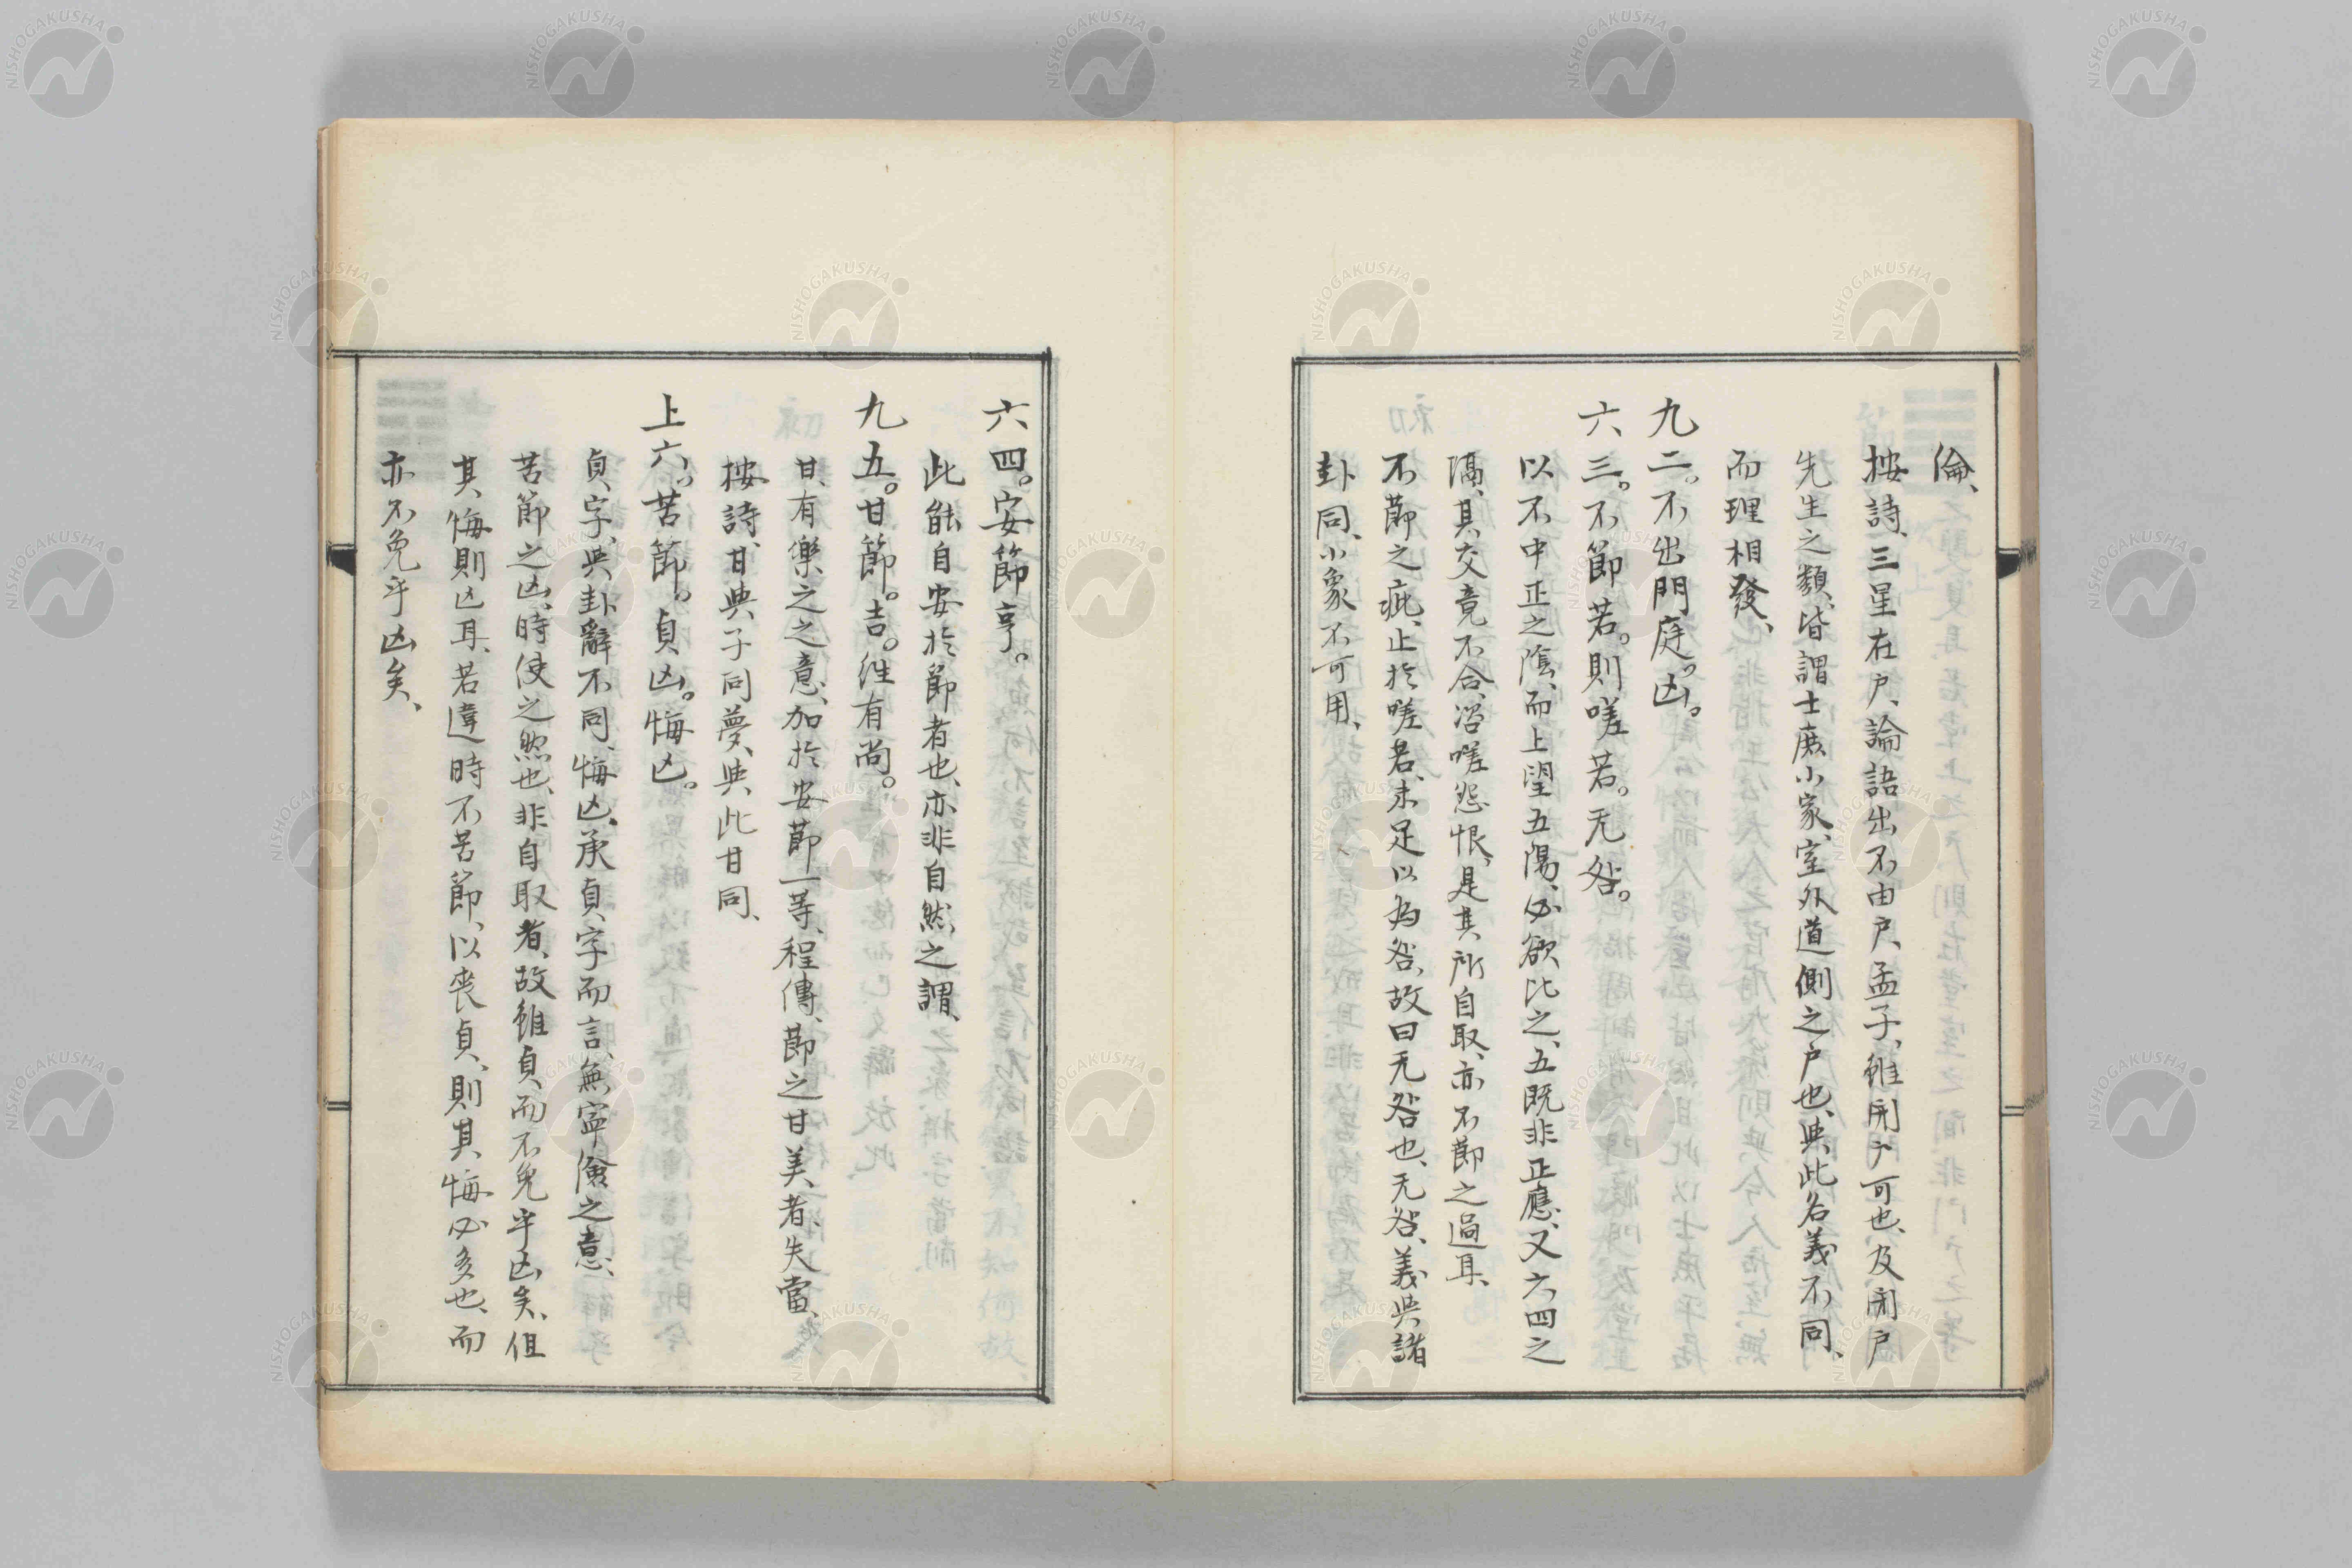 倫、
按詩、三星在戶、論語出不由戶、孟子、雖閉戶可也、及閉戶
先生之類、皆謂士庶小家、室外道側之戶也、與此名義不同、
而理相發、
九二。不出門庭。凶。
六三。不節若。則嗟若。无咎。
以不中正之陰、而上望五陽、必欲比之、五既非正應、又六四之
隔、其交竟不合、咨嗟怨恨、是其所自取、亦不節之過耳、
不節之疵、止於嗟若、未足以為咎、故曰无咎也、无咎、義與諸
卦同、小象不可用、
六四。安節亨。
此能自安於節者也、亦非自然之謂、
九五。甘節。吉。往有尚。
甘、有樂之之意、加於安節一等、程傳、節之甘美者、失當、
按詩、甘與子同夢、與此甘同、
上六。苦節。貞凶。悔亡。
貞字、與卦辭不同、悔亡、承貞字而言、無寧儉之意、
苦節之凶、時使之然也、非自取者、故雖貞、而不免乎凶矣、但
其悔則亡耳、若違時不苦節、以喪貞、則其悔必多也、而
亦不免乎凶矣、
NISHOGAKUSHA